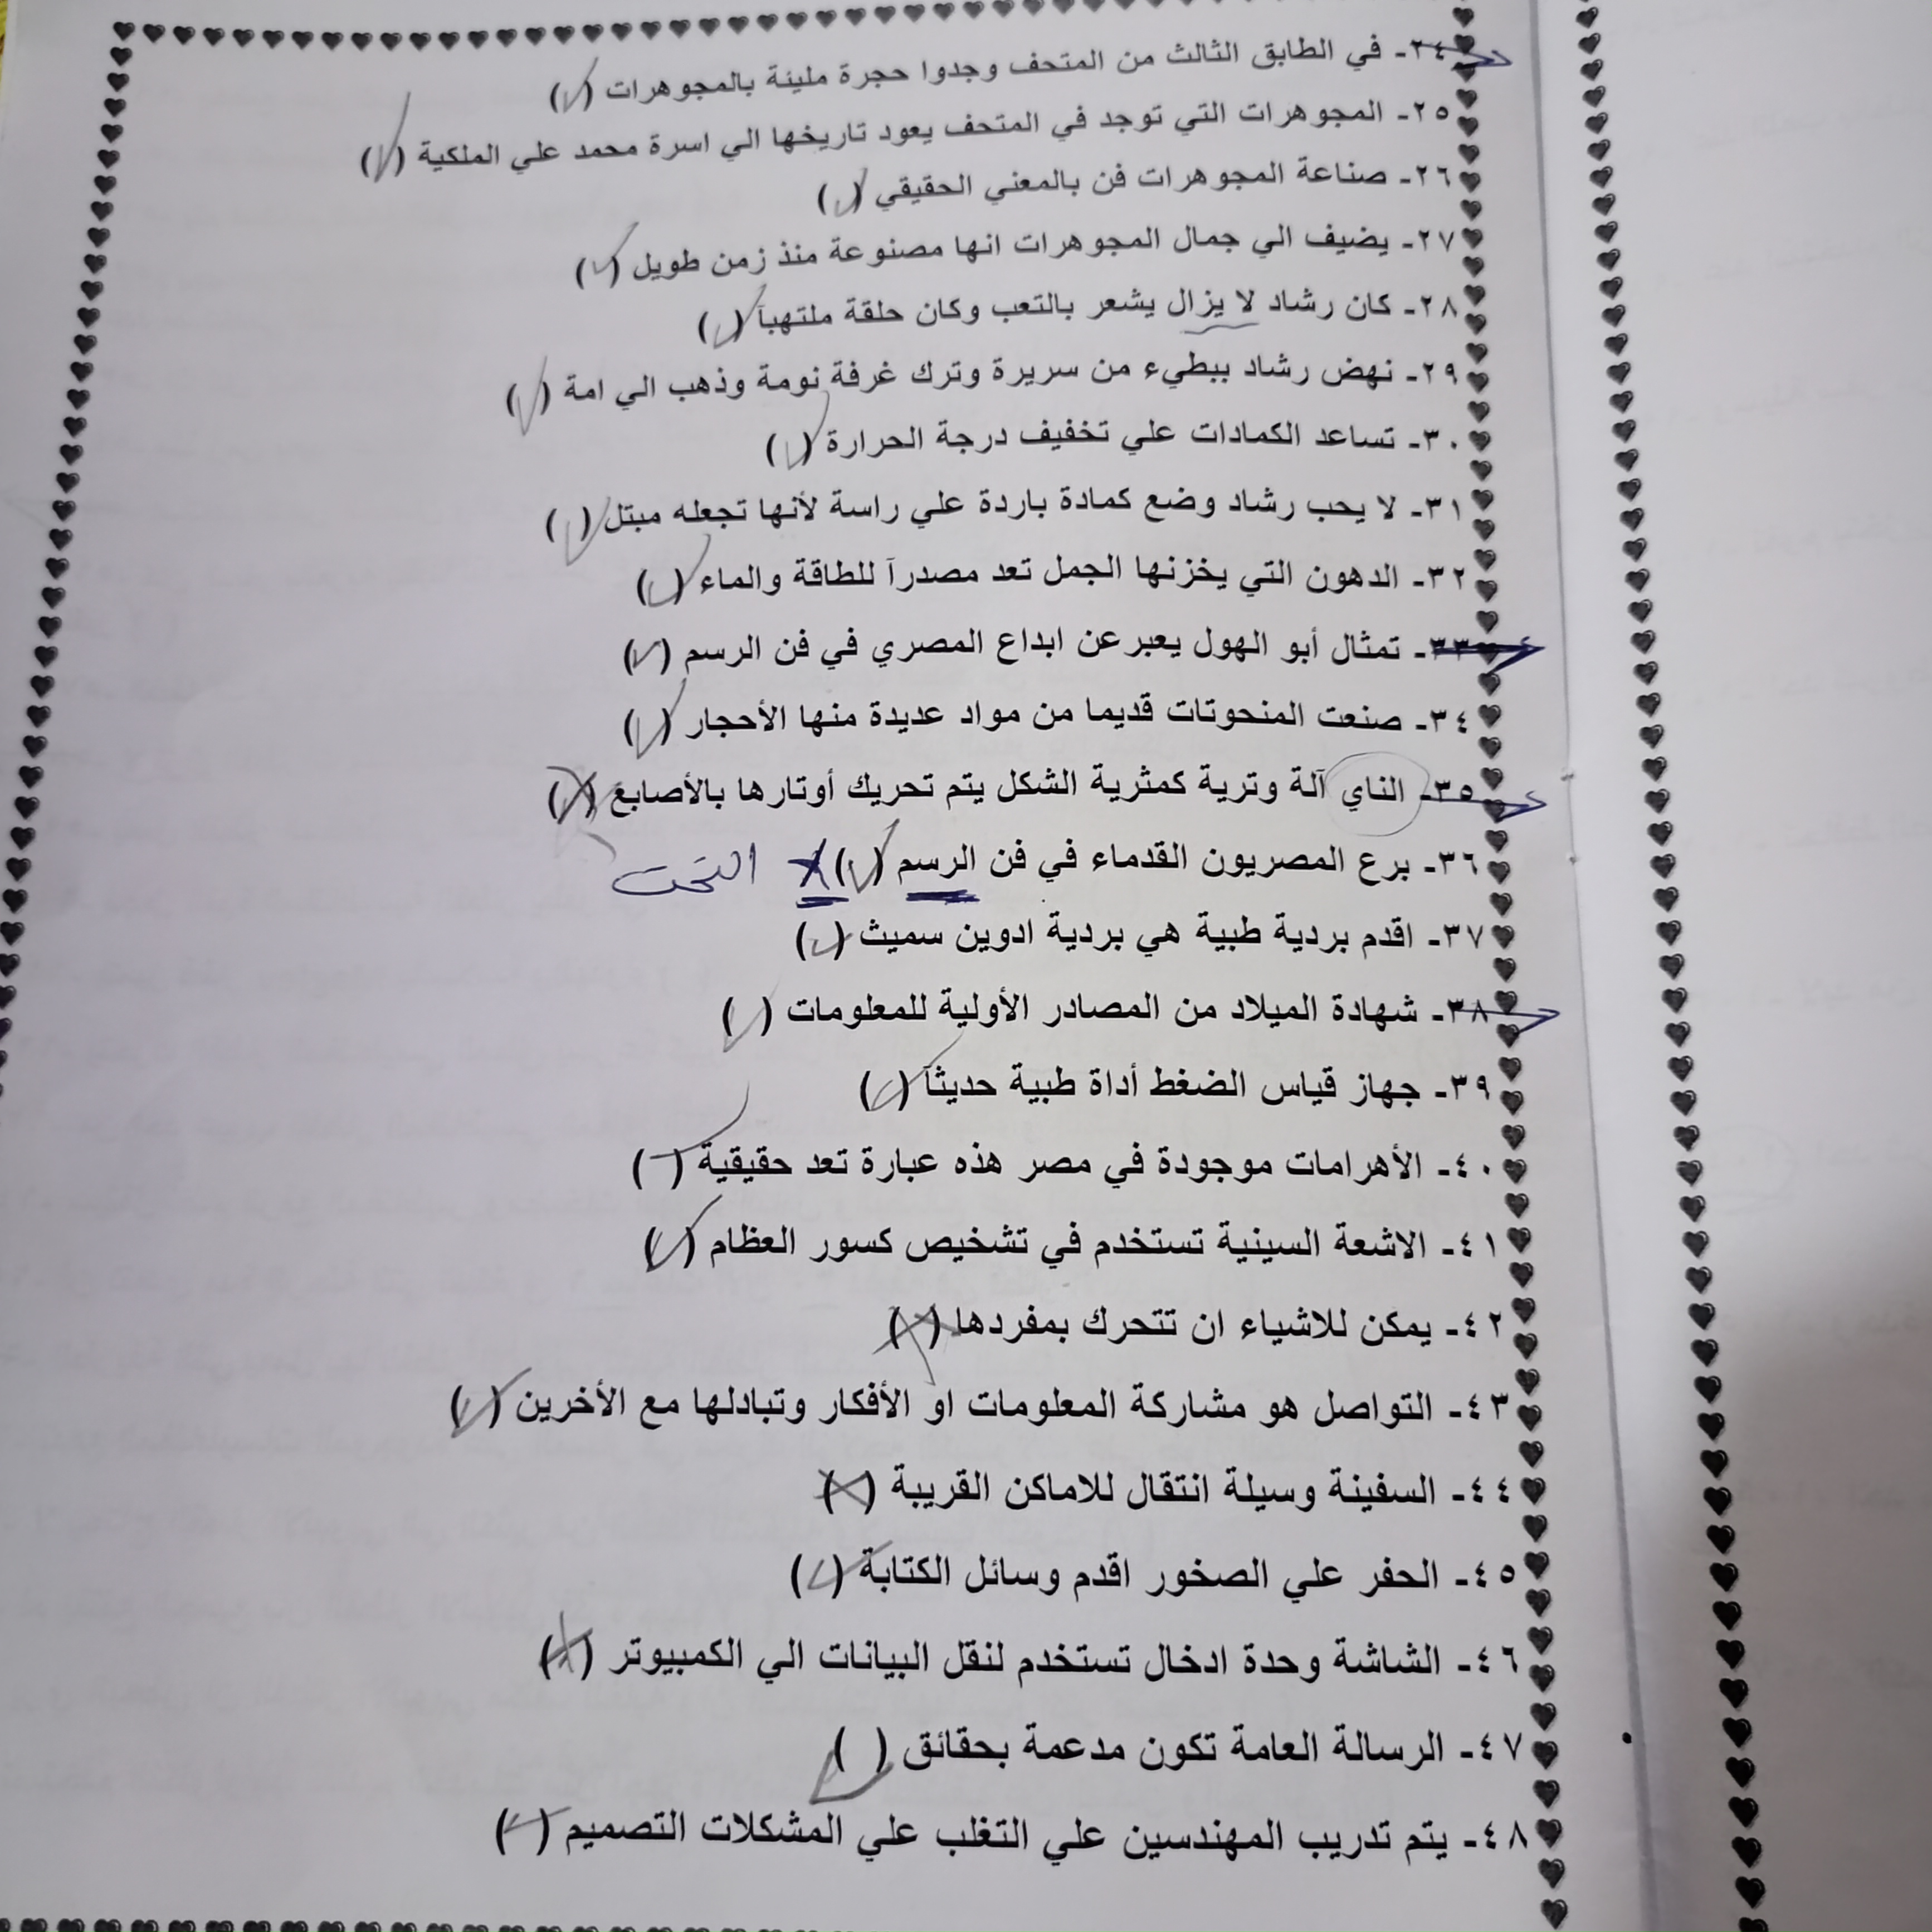 ٢٤- في الطابق الثالث من المتحف وجدوا حجرة مليئة بالمجوهرات (✓)
٢٥- المجوهرات التي توجد في المتحف يعود تاريخها الي اسرة محمد علي الملكية (✓)
٢٦- صناعة المجوهرات فن بالمعني الحقيقي (✓)
٢٧- يضيف الي جمال المجوهرات انها مصنوعة منذ زمن طويل (✓)
٢٨- كان رشاد لا يزال يشعر بالتعب وكان حلقة ملتهبآ (✓)
٢٩- نهض رشاد ببطيء من سريرة وترك غرفة نومة وذهب الي امة (✓)
٣٠- تساعد الكمادات علي تخفيف درجة الحرارة (✓)
٣١- لا يحب رشاد وضع كمادة باردة علي راسة لأنها تجعله مبتل (✓)
٣٢- الدهون التي يخزنها الجمل تعد مصدرآ للطاقة والماء (✓)
٣٣- تمثال أبو الهول يعبرعن ابداع المصري في فن الرسم (✓)
٣٤- صنعت المنحوتات قديما من مواد عديدة منها الأحجار (✓)
٣٥- الناي آلة وترية كمثرية الشكل يتم تحريك أوتارها بالأصابع (X)
٣٦- برع المصريون القدماء في فن الرسم (✓) X النحت
٣٧- اقدم بردية طبية هي بردية ادوين سميث (✓)
٣٨- شهادة الميلاد من المصادر الأولية للمعلومات (✓)
٣٩- جهاز قياس الضغط أداة طبية حديثآ (✓)
٤٠- الأهرامات موجودة في مصر هذه عبارة تعد حقيقية (✓)
٤١- الاشعة السينية تستخدم في تشخيص كسور العظام (✓)
٤٢- يمكن للاشياء ان تتحرك بمفردها (X)
٤٣- التواصل هو مشاركة المعلومات او الأفكار وتبادلها مع الأخرين (✓)
٤٤- السفينة وسيلة انتقال للاماكن القريبة (X)
٤٥- الحفر علي الصخور اقدم وسائل الكتابة (✓)
٤٦- الشاشة وحدة ادخال تستخدم لنقل البيانات الي الكمبيوتر (X)
٤٧- الرسالة العامة تكون مدعمة بحقائق (✓)
٤٨- يتم تدريب المهندسين علي التغلب علي المشكلات التصميم (✓)